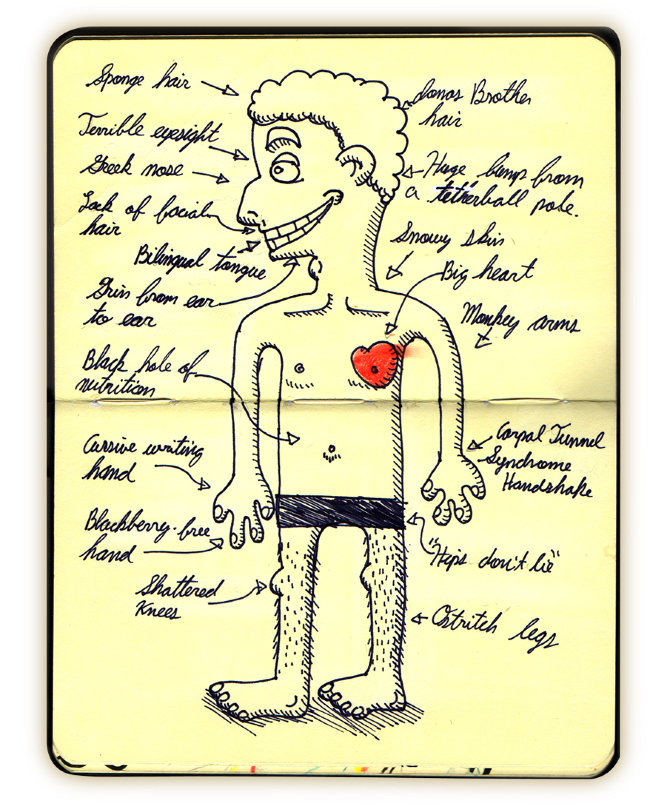 Sponge hair
Jonas Brother
hair
Terrible eyesight
Greek nose
Huge bump from
a tetherball pole.
Lack of facial
hair
Bilingual tongue
Snowy skin
Big heart
Grin from ear
to ear
Monkey arms
Black hole of
nutrition
Cursive writing
hand
Carpal Tunnel
Syndrome
Handshake
Blackberry-free
hand
"Hips don't lie"
Shattered
Knees
Ostritch legs